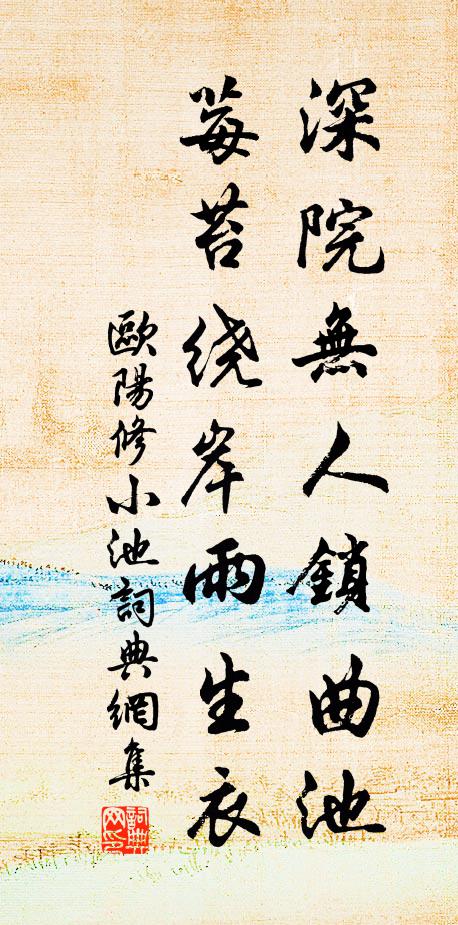 深院無人鎖曲池
莓苔绕岸雨生衣
歐陽修小池詞典網集